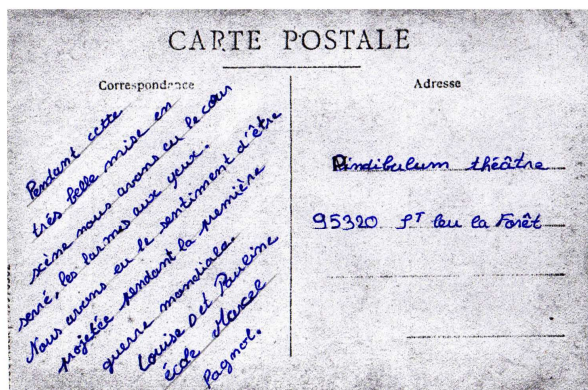 CARTE POSTALE
Correspondance
Pendant cette
très belle mise en
scène nous avons eu le cœur
serré, les larmes aux yeux.
Nous avons eu le sentiment d'être
projetée pendant la première
guerre mondiale.
Louise D et Pauline
école Marcel
Pagnol.
Adresse
Pindibulum théâtre
95320 St leu la Forêt